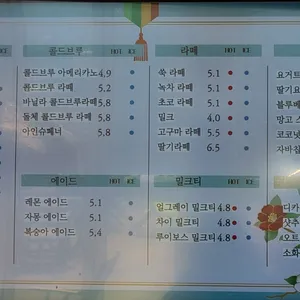 콜드브루 HOT ICE
콜드브루 아메리카노 4.9
콜드브루 라떼 5.2
바닐라 콜드브루라떼 5.8
돌체 콜드브루 라떼 5.8
아인슈페너 5.8
라떼 HOT ICE
쑥 라떼 5.1
녹차 라떼 5.1
초코 라떼 5.1
밀크 4.0
고구마 라떼 5.5
딸기라떼 6.5
에이드 HOT ICE
레몬 에이드 5.1
자몽 에이드 5.1
복숭아 에이드 5.4
밀크티 HOT ICE
얼그레이 밀크티 4.8
차이 밀크티 4.8
루이보스 밀크티 4.8
요거트
딸기요
블루베
망고 스
코코넛
자바칩
디카
샷추
오트
소화